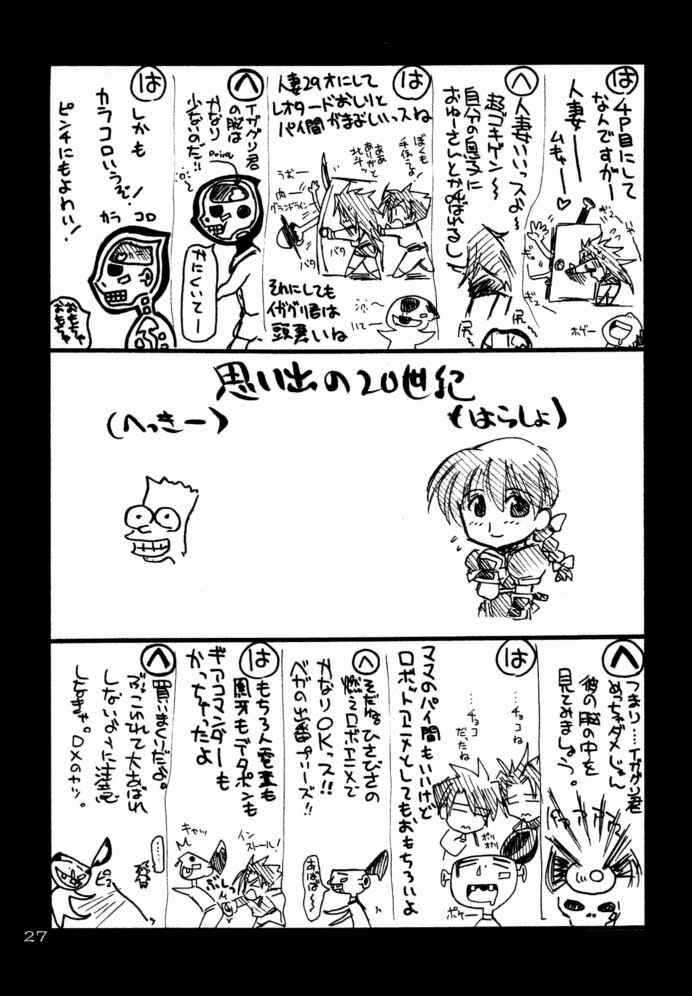 は
4P目にして
なんですがー
人妻——
ムキャー♡
ギュ
ギュ
ボゲー
へ
人妻いいっスよ〜
超ゴキゲン〜
自分の息子に
おゅーさんとか呼ばれるし
尻〜
尻〜
は
人妻29才にして
レオタードおしりと
パイ間がまぶしいっスね
ぼくも
手伝うよ!
ああ
ありがと
北斗っ
うおー
内ー
グランドライン
バタ
バタ
それにしても
イガグリ君は
頭悪いね
へ
イガグリ君
の脳は
かなり
少ないのだ!!
Point
かにくいてー
は
しかも
カラコロいうぞ!
カラ コロ
ピンチにもよわい!
おもちゃ
おもちゃ
思い出の20世紀
(へっきー)
(はらしょ)
へ
つまり…イガグリ君
めっちゃダメじゃん
彼の脳の中を
見てみましょう。
は
ママのパイ間もいいけど
ロボットアニメとしてもおもちろいよ
…チョコね
…チョコ
だったね
ポリ
ポリ
ポケー
へ
そだねひさびさの
燃えロボアニメで
かなりOKっス!!
ベガの出番プリーズ!!
あばば〜
は
もちろん電童も
凰牙もデータポンも
ギアコマンダーも
かっちゃったよ
キャッ
インストール!
へ
買いまくりだよ。
ぶっこわれて大あばれ
しないように注意
しなきゃ。DXのヤツ。
……
27